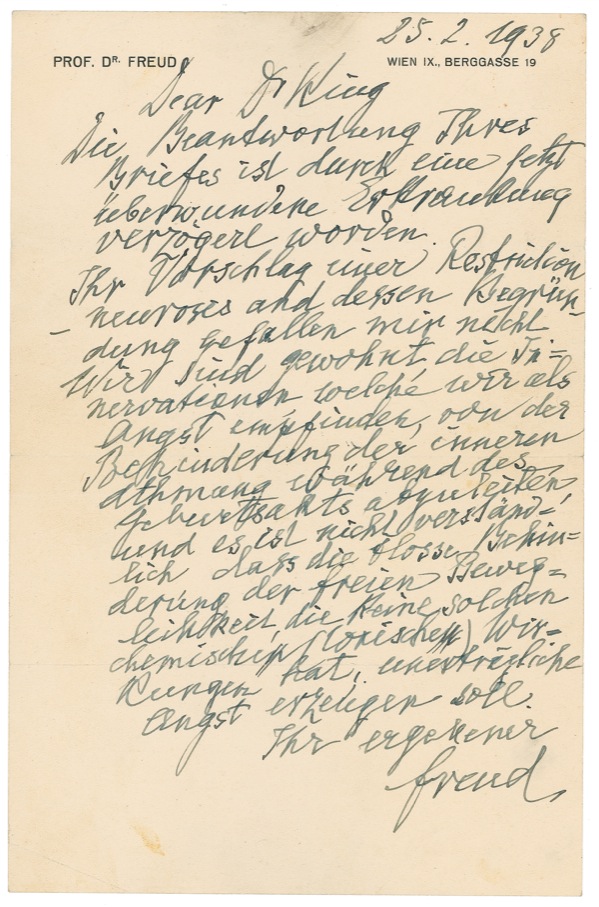 25. 2. 1938
PROF. DR. FREUD
WIEN IX., BERGGASSE 19
Dear Dr King
Die Beantwortung Ihres
Briefes ist durch eine jetzt
überwundene Erkrankung
verzögert worden.
Ihr Vorschlag einer Restriction
neuroses and dessen Begrün-
dung gefallen mir nicht
Wir sind gewohnt die In=
nervationen welche wir als
Angst empfinden, von der
Behinderung der inneren
Athmung während des
Geburtsakts abzuleiten,
und es ist nicht verständ=
lich dass die blosse Behin=
derung der freien Beweg=
lichkeit, die keine solchen
chemischen (toxischen) Wir=
kungen hat, unerträgliche
Angst erzeugen soll.
Ihr ergebener
Freud